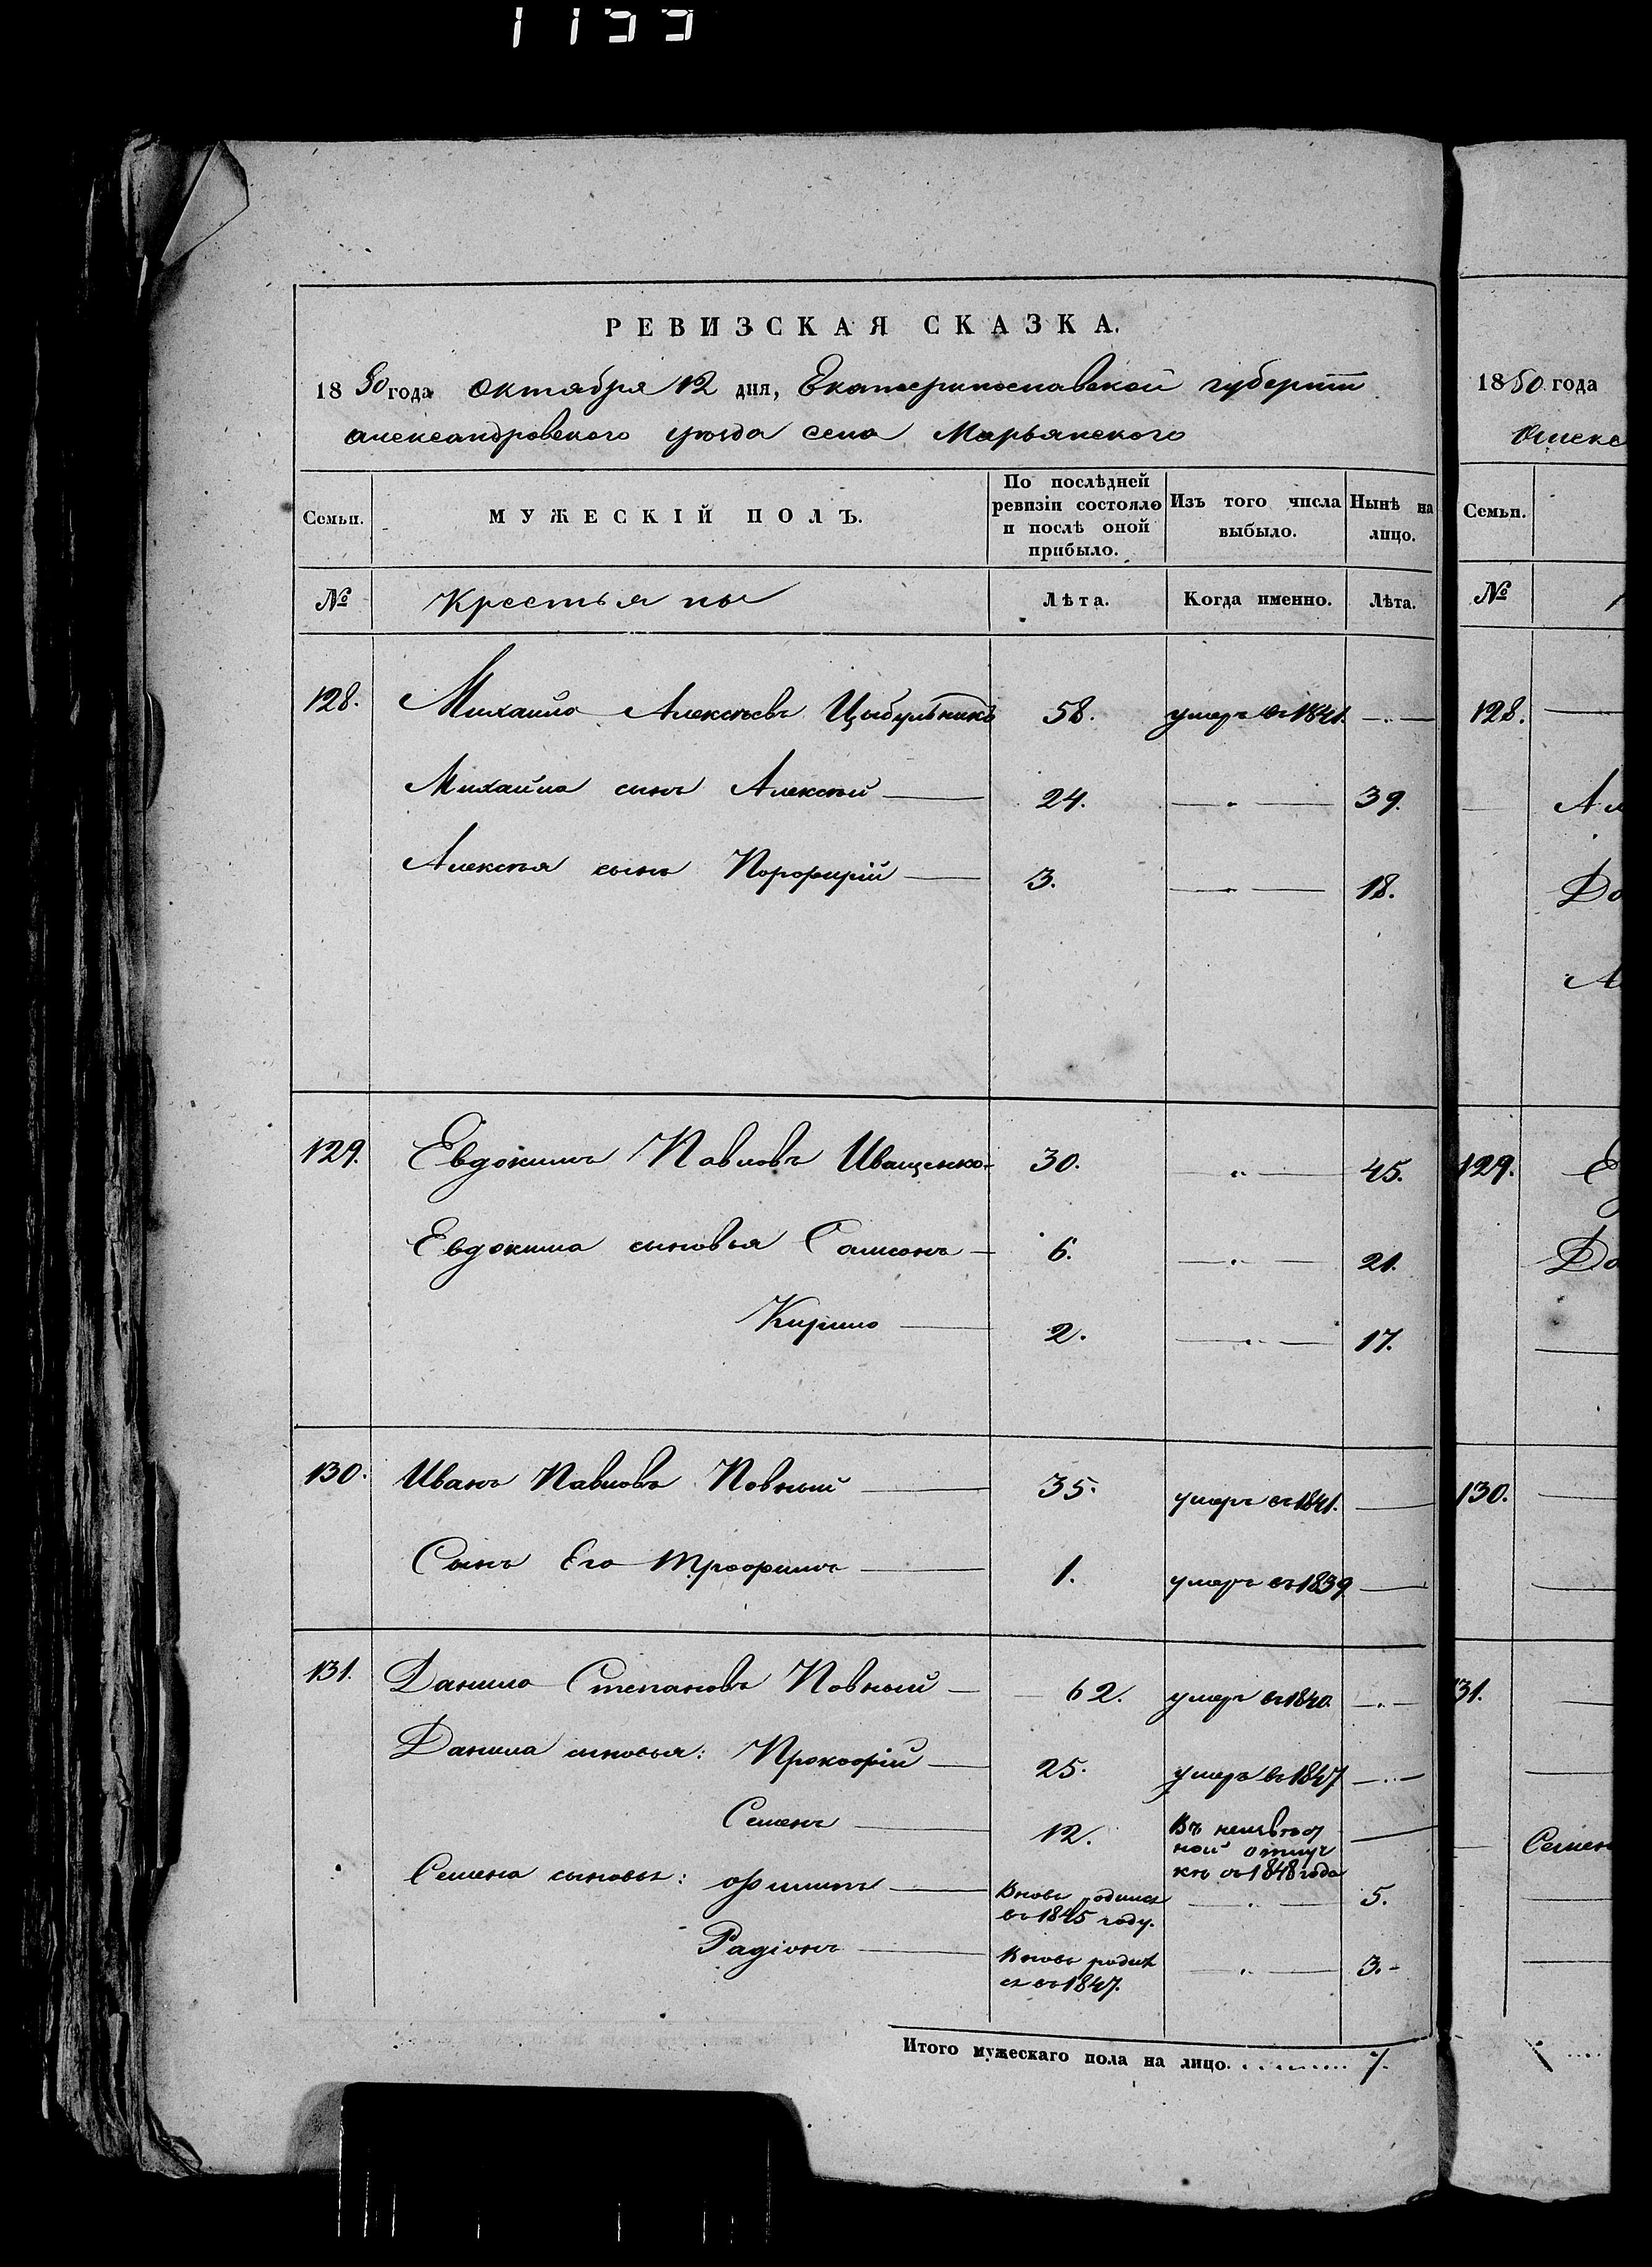 1133
РЕВИЗСКАЯ СКАЗКА.
1850 года Октября 12 дня, Екатеринославской губернiи
Александровского уѣзда села Марьянского
Семьи. МУЖЕСКIЙ ПОЛЪ. По послѣдней ревизiи состояло и послѣ оной прибыло. Изъ того числа выбыло. Нынѣ на лицо.
№ Крестьяны Лѣта. Когда именно. Лѣта.
128. Михайло Алексѣевъ Цыбульникъ 58. умеръ въ 1841. — " —
Михайла сынъ Алексѣй — 24. — " — 39.
Алексѣя сынъ Порфирiй — 3. — " — 18.
129. Евдокимъ Павловъ Иващенко 30. " — 45.
Евдокима сыновья Самсонъ — 6. — " — 21.
Кирило — 2. — " — 17.
130. Иванъ Павловъ Повный — 35. умеръ въ 1841. —
Сынъ Его Трофимъ — 1. умеръ въ 1839 —
131. Данило Степановъ Повный — 62. умеръ въ 1840. — " —
Данила сыновья: Прокофiй — 25. умеръ въ 1847 — " —
Семенъ — 12. Въ неизвѣст
ной отлуч
кѣ съ 1848 года —
Семена сыновья: Филипъ — Вновь родился
въ 1845 году. — " — 5.
Радiонъ — Вновь родил
ся въ 1847. — " — 3.
Итого мужескаго пола на лицо. . . . . . . . . . 7.
1850 года
Алекс
Семьи.
№
128. —
Ал
До
А
129. Е
До
130. —
31. —
Семен